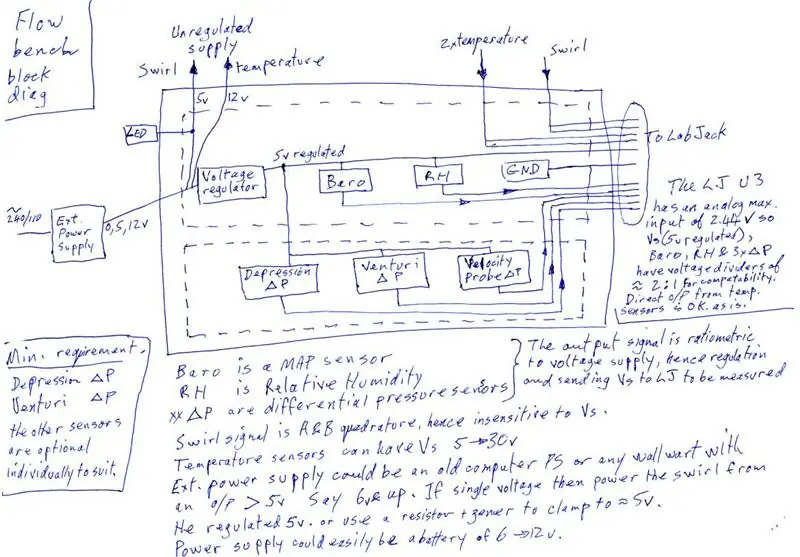 Flow
bench
block
diag
Unregulated
supply
Swirl
temperature
2xtemperature
Swirl
5v
12v
LED
To LabJack
5v regulated
Voltage
regulator
Baro
RH
GND
~240/110
Ext.
Power
Supply
0,5,12v
Depression
ΔP
Venturi
ΔP
Velocity
Probe ΔP
The LJ U3
has an analog max.
input of 2.44V so
Vs(5v regulated),
Baro, RH & 3xΔP
have voltage dividers of
≈ 2:1 for compatability.
Direct o/P from temp.
sensors is OK. as is.
Min. requirement.
Depression ΔP
Venturi ΔP
the other sensors
are optional
individually to suit.
Baro is a MAP sensor
RH is Relative Humidity
xx ΔP are differential pressure sensors
The output signal is ratiometric
to voltage supply, hence regulation
and sending Vs to LJ to be measured
Swirl signal is A&B quadrature, hence insensitive to Vs.
Temperature sensors can have Vs 5→30v
Ext. power supply could be an old computer PS or any wall wart with
an O/P > 5v Say 6v & up. If single voltage then power the swirl from
the regulated 5v. or use a resistor + zener to clamp to ≈ 5v.
Power supply could easily be a battery of 6→12v.